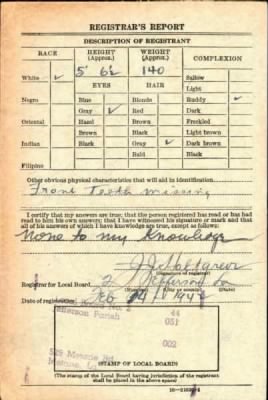 REGISTRAR'S REPORT
DESCRIPTION OF REGISTRANT
RACE HEIGHT (Approx.) WEIGHT (Approx.) COMPLEXION
White ✓ 5' 6½ 140 Sallow
Light
EYES HAIR
Negro Blue Blonde Ruddy ✓
Gray ✓ Red Dark
Oriental Hazel Brown Freckled
Brown Black Light brown
Indian Black Gray ✓ Dark brown
Filipino Bald Black
Other obvious physical characteristics that will aid in identification.
Front Teeth missing
I certify that my answers are true; that the person registered has read or has had
read to him his own answers; that I have witnessed his signature or mark and that
all of his answers of which I have knowledge are true, except as follows:
None to my Knowledge
(Signature of registrar)
Registrar for Local Board 2 Jefferson La
(Number) (City or county) (State)
Date of registration
Jefferson Parish 44
051
002
529 Metairie Rd.
Metairie, La.
(STAMP OF LOCAL BOARD)
(The stamp of the Local Board having jurisdiction of the registrant
shall be placed in the above space)